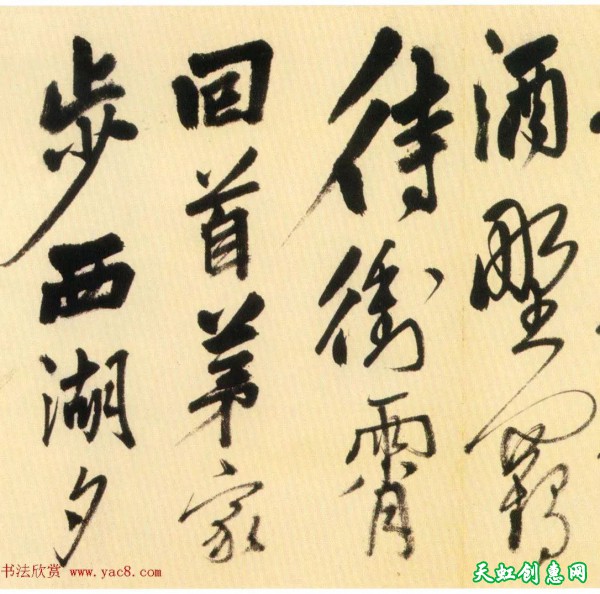 酒野鶴
待衝霄
回首第家
步西湖夕
书法欣赏 www.yac8.com
天虹创惠网